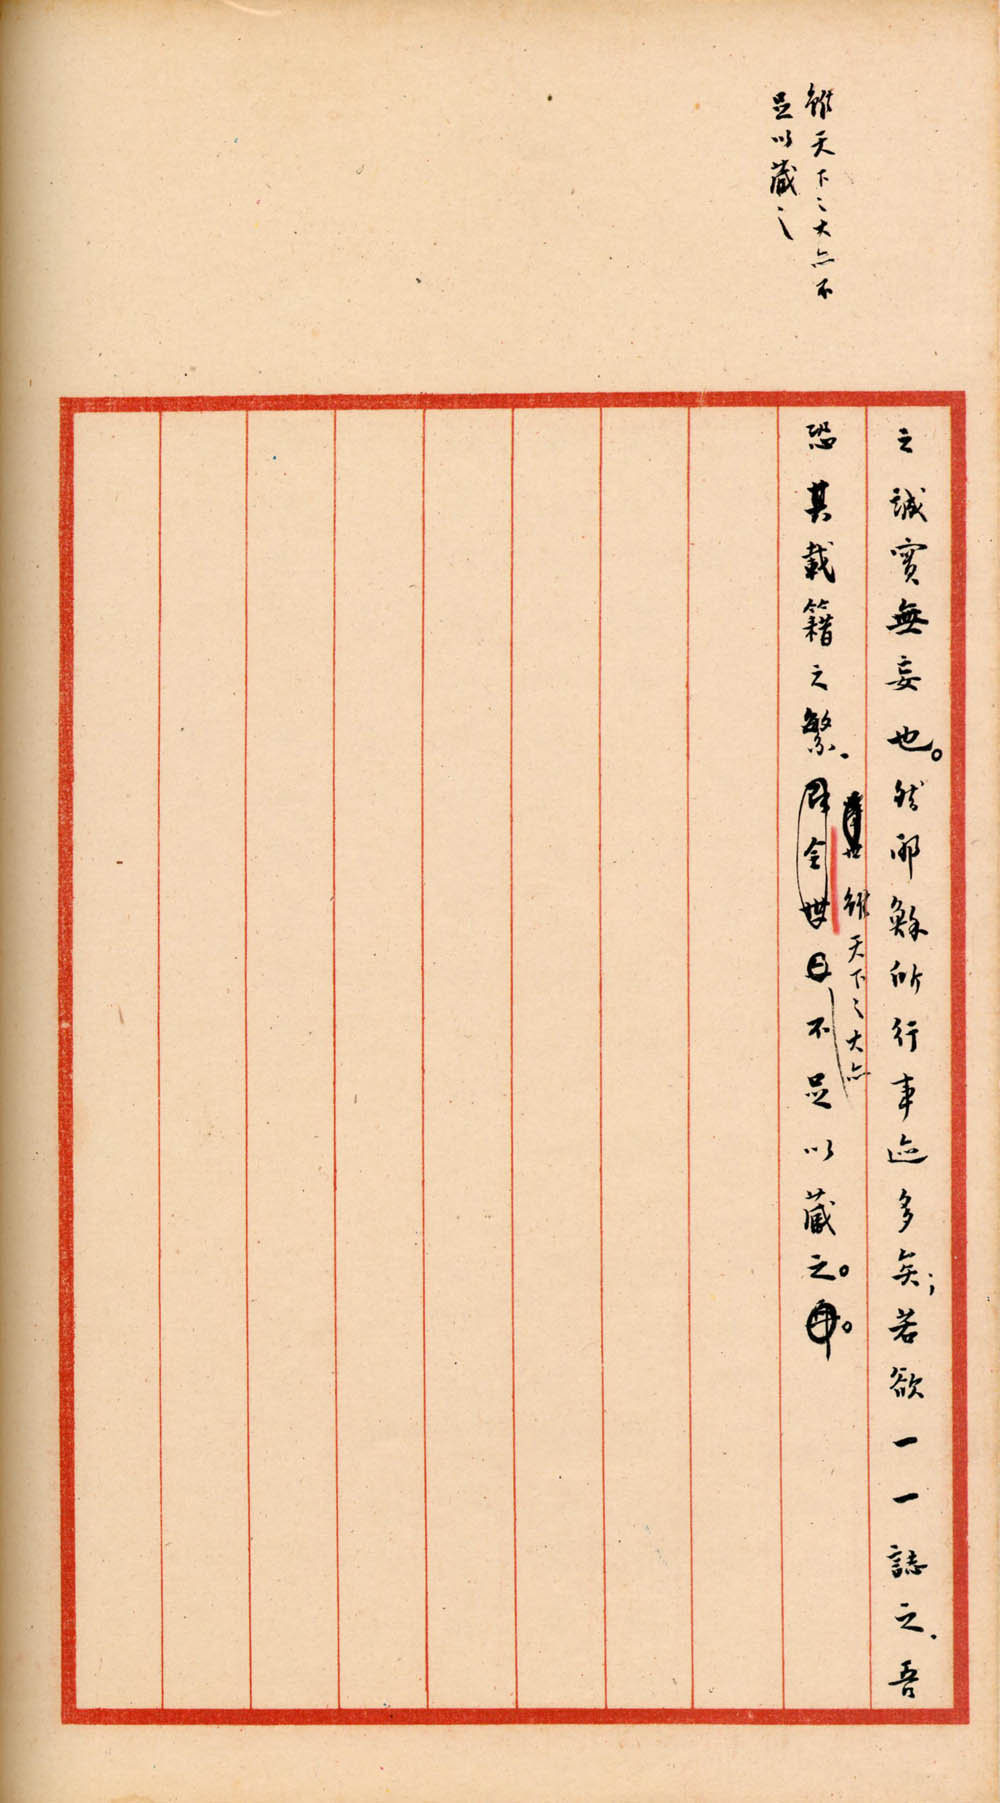 雖天下之大亦不
足以藏之
之誠實無妄也。然耶穌所行事迹多矣;若欲一一誌之、吾
恐其載籍之繁、雖天下之大亦不足以藏之。